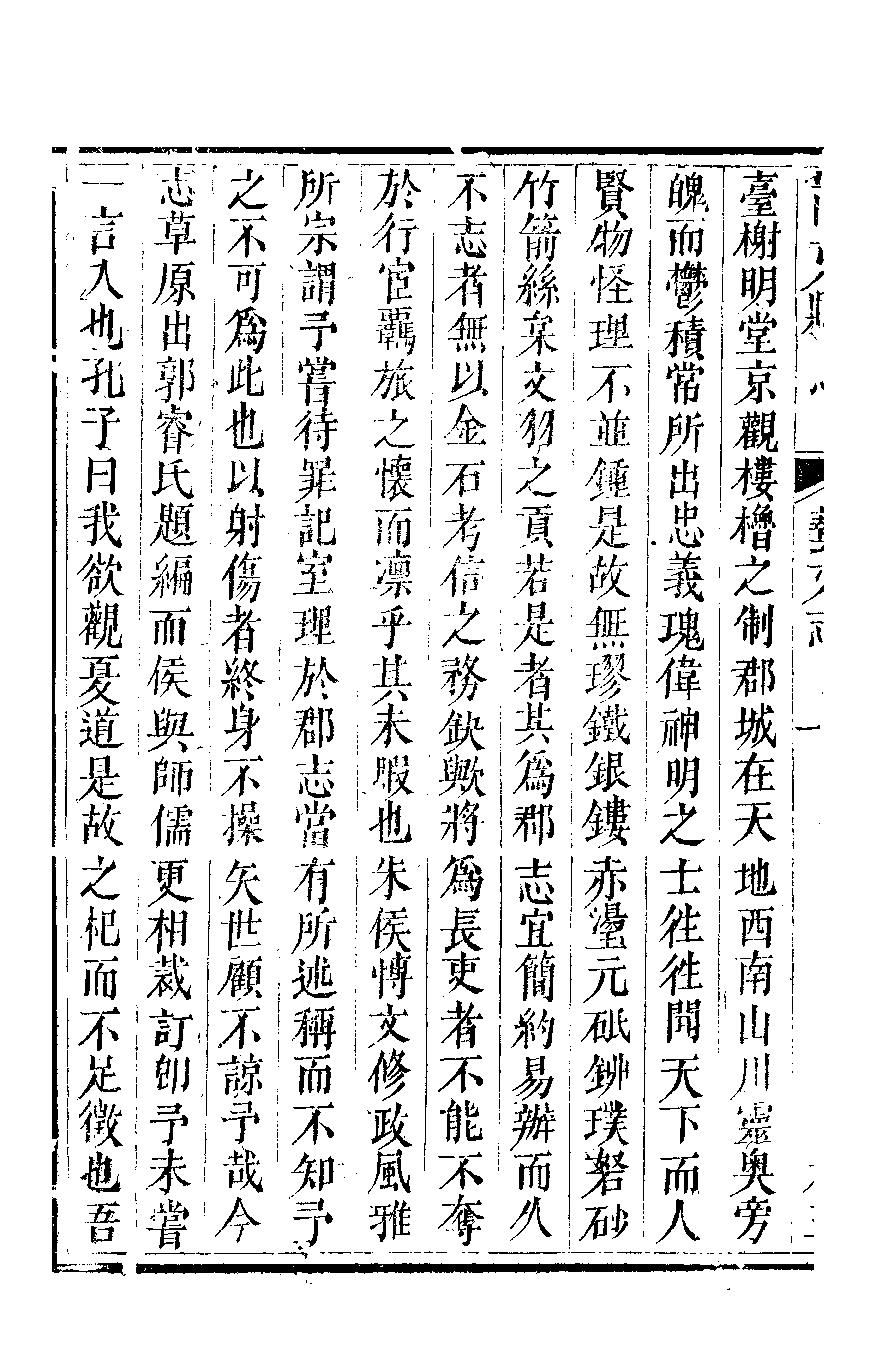 臺榭明堂京觀樓櫓之制郡城在天地西南山川靈奥旁
魄而鬱積常所出忠義瑰偉神明之士徃徃聞天下而人
賢物怪理不並鍾是故無璆鐵銀鏤赤堊元砥銶璞砮砂
竹箭絲枲文羽之貢若是者其爲郡志宜簡約易辦而久
不志者無以金石考信之務缺歟將爲長吏者不能不奪
於行宦覊旅之懷而凛乎其未暇也朱侯愽文修政風雅
所宗謂予嘗待罪記室理於郡志當有所述稱而不知予
之不可爲此也以射傷者終身不操矢世顧不諒予哉今
志草原出郭睿氏題編而侯與師儒更相裁訂卽予未嘗
一言入也孔子曰我欲觀夏道是故之杞而不足徵也吾
藝文志